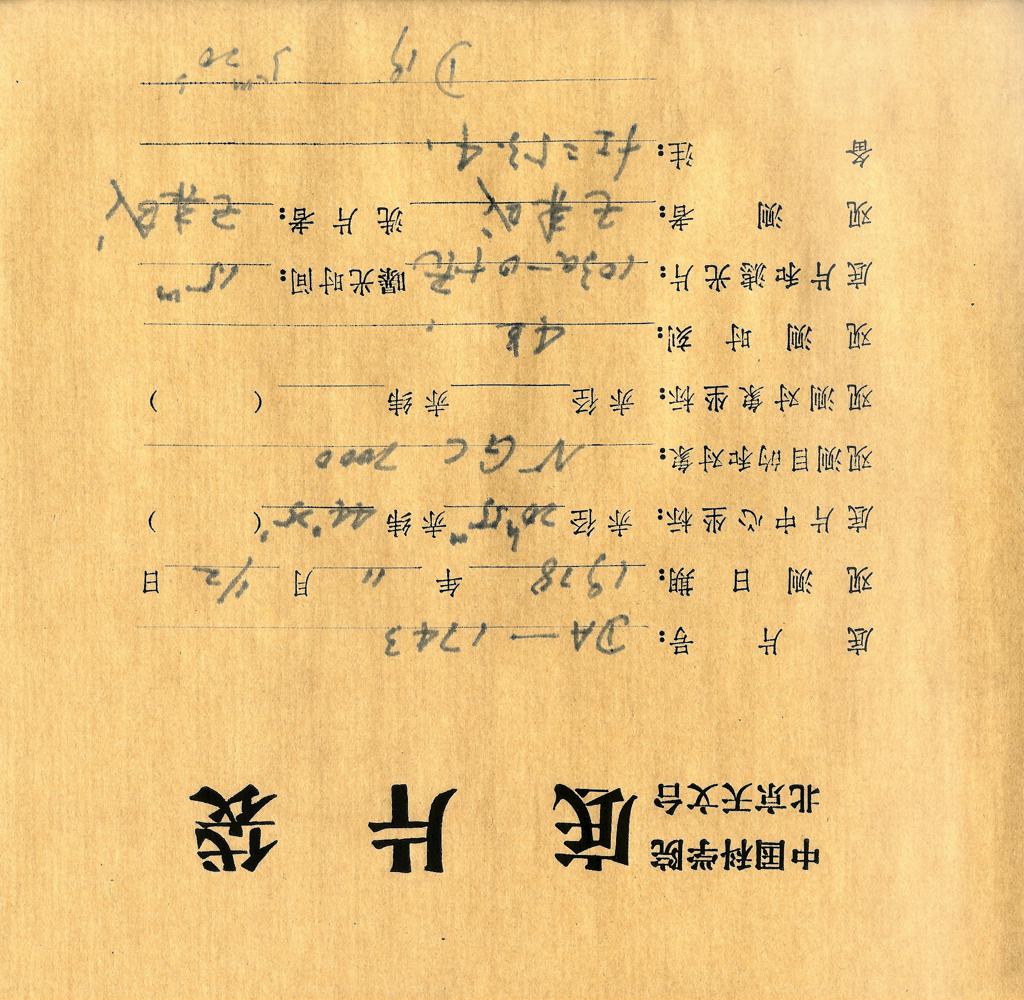 中国科学院
北京天文台 底片袋
底片号: DA—1743
观测日期: 1978 年 11 月 1/2 日
底片中心坐标: 赤径 20h55m 赤纬 44°25' ( )
观测目的和对象: NGC 7000
观测对象坐标: 赤径 赤纬 ( )
观测时刻:
底片和滤光片: 103a-O+ 曝光时间: 15m
观测者: 洗片者:
备注: fz=53.4
D19 5m20s